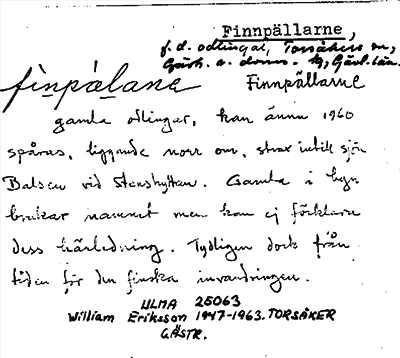 Finnpällarne,
f.d. odlingar, Torsåkers sn,
Gästr. ö. doms. Gävl. län.
finpälane Finnpällarne
gamla odlingar, kan ännu 1960
spåras, liggande norr om, strax intill sjön
Balsen vid Stenshyttan. Gamla i byn
brukar namnet men kan ej förklara
dess härledning. Tydligen dock från
tiden för den finska invandringen.
ULMA 25063
William Eriksson 1947-1963. TORSÅKER
GÄSTR.